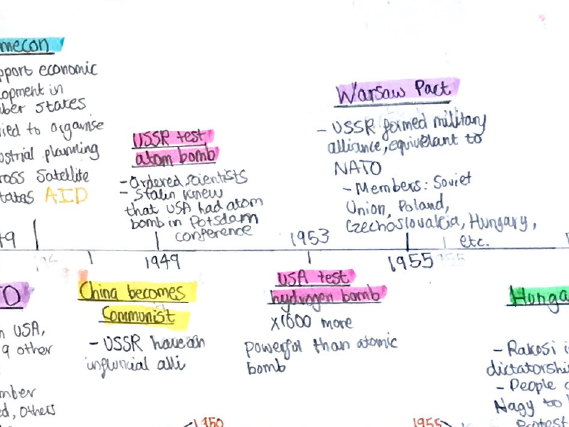 mecon
pport economic
lopment in
ber states
ied to organise
ustrial planning
ross satellite
tates AID
USSR test
atom bomb
- Ordered scientists
- Stalin knew
that USA had atom
bomb in Potsdam
conference
Warsaw Pact
- USSR formed military
alliance, equivelant to
NATO
- Members: Soviet
Union, Poland,
Czechoslovakia, Hungary,
etc.
49
1949
1953
1955
TO
n USA,
9 other
mber
ed, others
China becomes
Communist
- USSR have an
influncial alli
USA test
hydrogen bomb
x1000 more
powerful than atomic
bomb
Hunga
- Rakosi i
dictatorshi
- People
Nagy to
- Protest
1950
1955